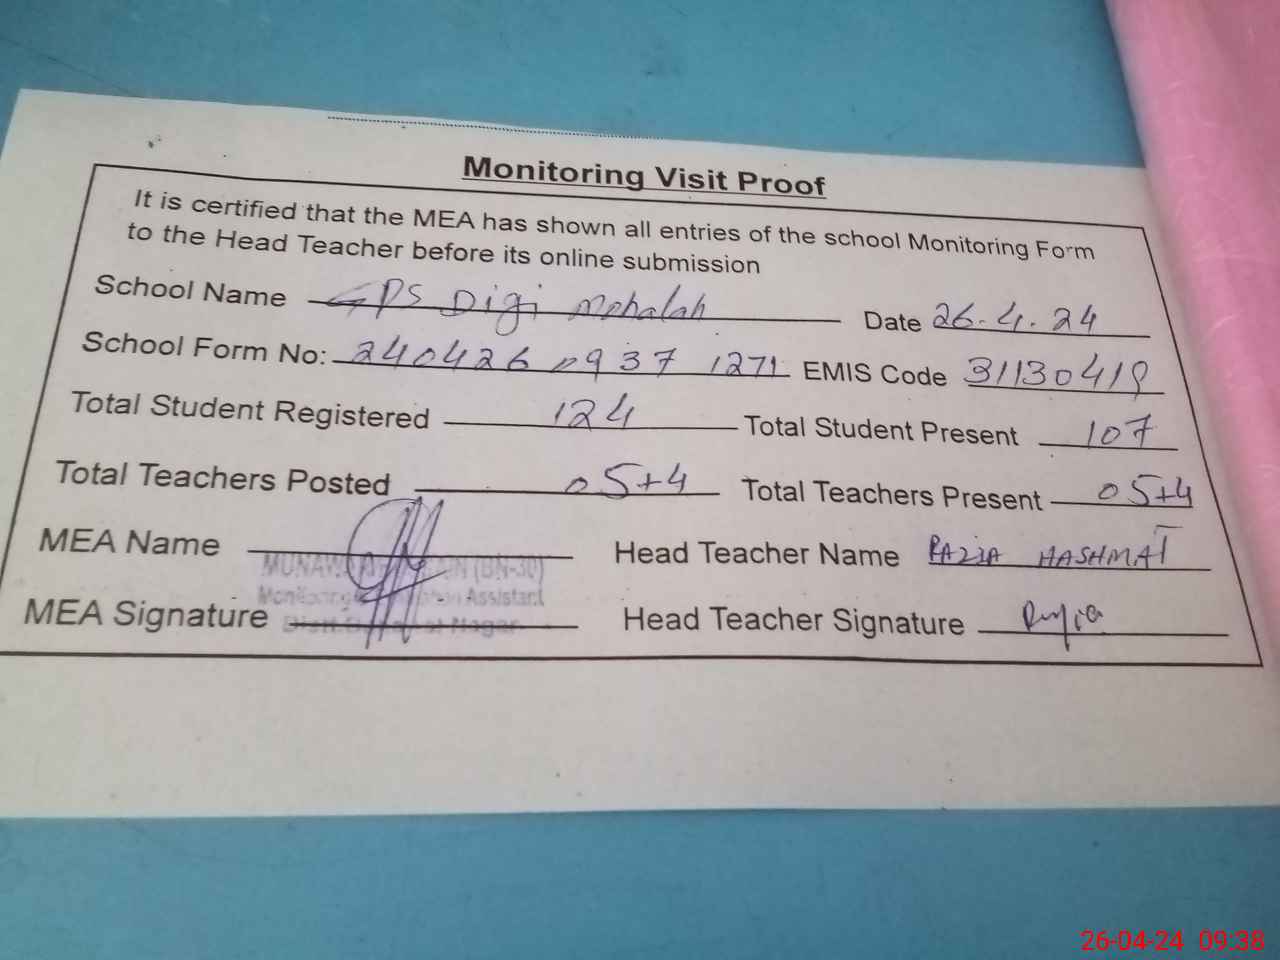 Monitoring Visit Proof
It is certified that the MEA has shown all entries of the school Monitoring Form
to the Head Teacher before its online submission
School Name GPS Digi Mohalah Date 26.4.24
School Form No: 240426 0937 1271 EMIS Code 31130419
Total Student Registered 124 Total Student Present 107
Total Teachers Posted 05+4 Total Teachers Present 05+4
MEA Name Head Teacher Name RAZIA HASHMAT
(BN-30)
Assistant
MEA Signature Head Teacher Signature Razia
26-04-24 09:38